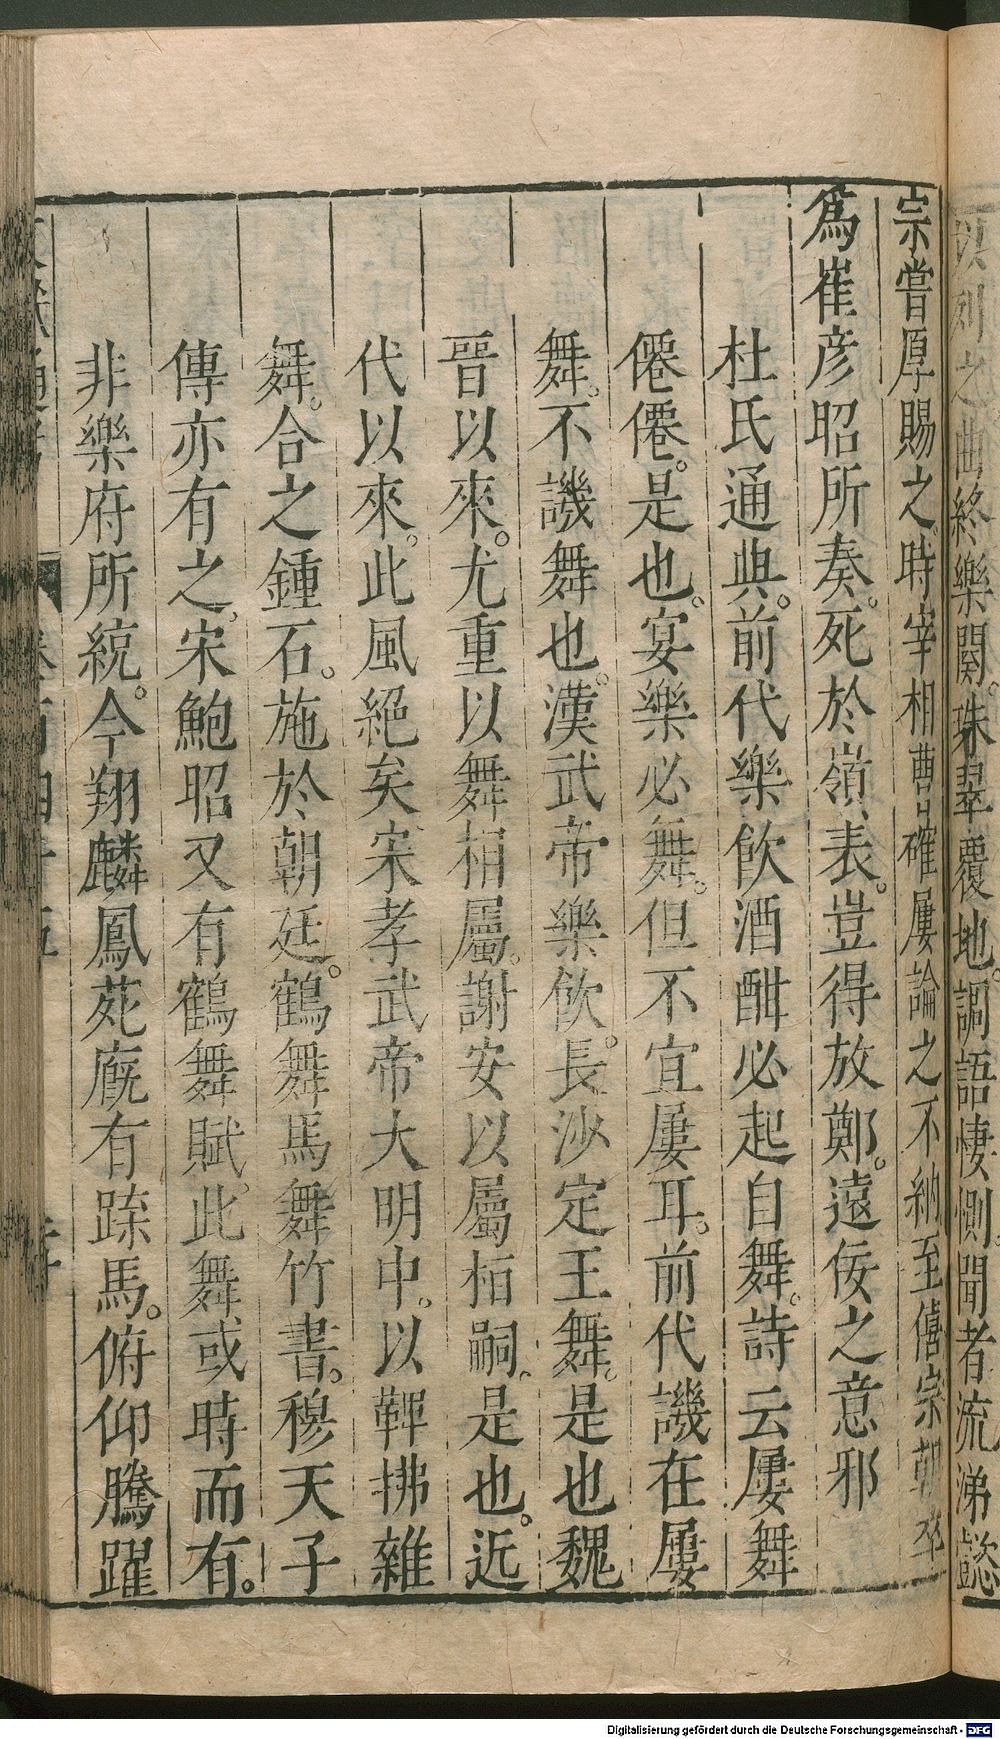 以列之曲終樂闋。珠翠覆地。調語悽惻。聞者流涕懿
宗嘗厚賜之。時宰相曹確屢論之不納至僖宗朝卒
爲崔彦昭所奏。死於嶺表。豈得放鄭。遠佞之意邪
杜氏通典。前代樂飲酒酣必起自舞。詩云屢舞
僊僊。是也。宴樂必舞。但不宜屢耳。前代譏在屢
舞。不譏舞也。漢武帝樂飲。長沙定王舞。是也魏
晉以來。尤重以舞相屬。謝安以屬桓嗣。是也。近
代以來。此風絕矣宋孝武帝大明中。以鞞拂雜
舞。合之鍾石。施於朝廷。鶴舞馬舞竹書。穆天子
傳亦有之。宋鮑昭又有鶴舞賦。此舞或時而有。
非樂府所統。今翔麟鳳苑廐有蹀馬。俯仰騰躍
Digitalisierung gefördert durch die Deutsche Forschungsgemeinschaft - DFG